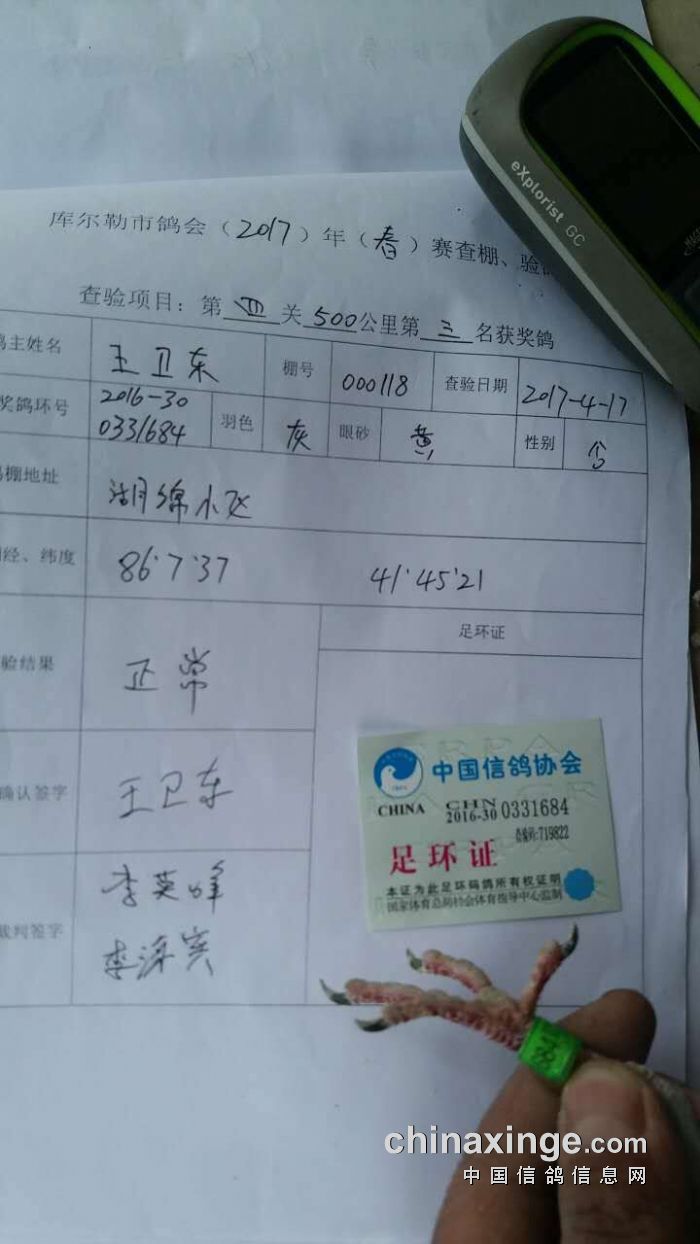 eXplorist GC
库尔勒市鸽会（2017）年（春）赛查棚、验
查验项目：第 四 关 500公里第 三 名获奖鸽
主姓名 王卫东 棚号 000118 查验日期 2017-4-17
奖鸽环号 2016-30 0331684 羽色 灰 眼砂 黄 性别
棚地址 湖绵小区
经、纬度 86°7'37 41°45'21
足环证
验结果 正常
确认签字 王卫东
裁判签字 李英峰
中国信鸽协会
CHINA CHN
2016-30 0331684
719822
足环证
本证为此足环码鸽所有权证明
国家体育总局社会体育指导中心监制
chinaxinge.com
中国信鸽信息网